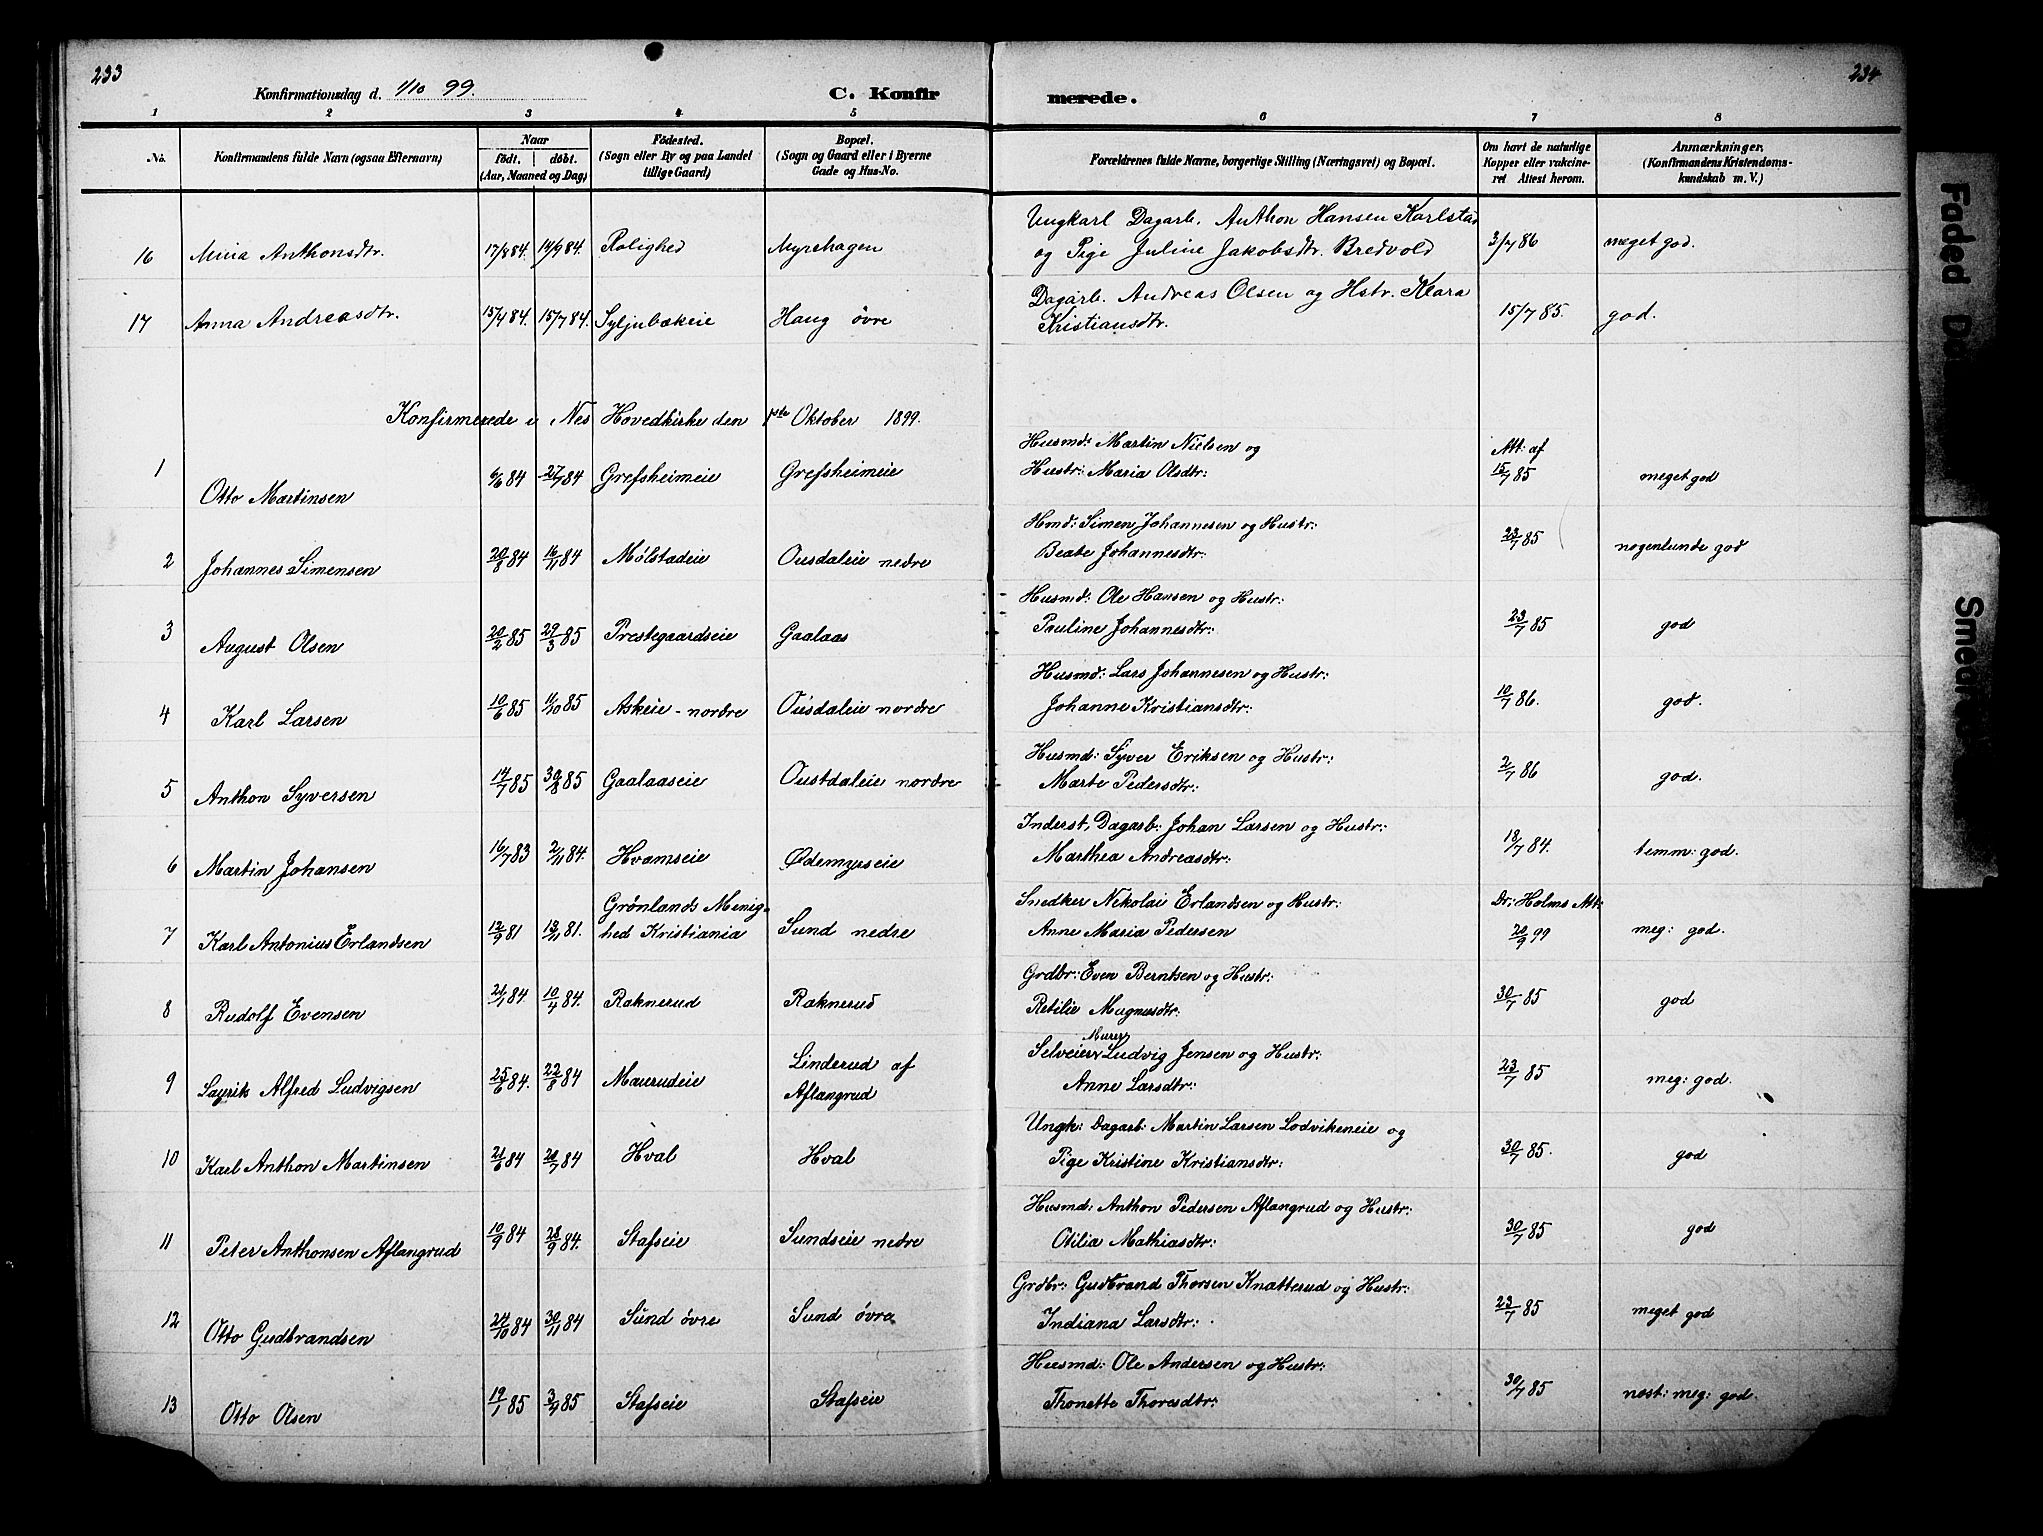 233
234
Konfirmationsdag d. 1/10 99.
C. Konfirmerede.
1 2 3 4 5 6 7 8
No. Konfirmandens fulde Navn (ogsaa Efternavn) Naar født. døbt. (Aar, Maaned og Dag) Fødested. (Sogn eller By og paa Landet tillige Gaard) Bopæl. (Sogn og Gaard eller i Byerne Gade og Hus-No. Forældrenes fulde Navne, borgerlige Stilling (Næringsvei) og Bopæl. Om havt de naturlige Kopper eller vaccineret Attest herom. Anmærkninger. (Konfirmandens Kristendomskundskab m. V.)
Ungkarl Dagarb. Anthon Hansen Karlstad
16 Mina Anthonsdtr. 17/8 84. 14/9 84. Rolighed Myrehagen og Pige Juline Jakobsdtr. Bredvold 3/7 86 meget god.
Dagarb. Andreas Olsen og Hstr. Klara
17 Anna Andreasdtr. 15/4 84. 15/7 84. Syljubækeie Haug övre Kristiansdtr. 15/7 85. god.
Konfirmerede i Nes Hovedkirke den 1ste Oktober 1899.
Husmd: Martin Nielsen og Att: af
1 Otto Martinsen 6/6 84 27/7 84 Grefsheimeie Grefsheimeie Hustr: Maria Olsdtr: 15/7 85 meget god
Hmd: Simen Johannesen og Hustr:
2 Johannes Simensen 20/8 84 16/11 84 Mølstadeie Ousdaleie nedre Beate Johannesdtr: 23/7 85 nogenlunde god
Husmd: Ole Hansen og Hustr:
3 August Olsen 20/2 85 29/3 85 Prestegaardseie Gaalaas Pauline Johannesdtr: 23/7 85 god
Husmd: Lars Johannesen og Hustr:
4 Karl Larsen 10/6 85 11/10 85 Askeie - nordre Ousdaleie nordre Johanne Kristiansdtr: 10/7 86. god.
Husmd: Syver Eriksen og Hustr:
5 Anthon Syversen 14/7 85 30/8 85 Gaalaaseie Oustdaleie nordre Marte Pedersdtr: 2/7 86 god.
Inderst, Dagarb: Johan Larsen og Hustr:
6 Martin Johansen 16/7 83 2/11 84. Hvamseie Ødemyrseie Marthea Andreasdtr: 18/7 84. temm: god.
Grønlands Menig- Snedker Nikolai Erlandsen og Hustr: Dr: Holms Att:
7 Karl Antonius Erlandsen 12/9 81 13/11 81. hed Kristiania Sund nedre Anne Maria Pedersen 20/9 99 meg: god.
Grdbr: Even Berntsen og Hustr:
8 Rudolf Evensen 21/1 84 10/4 84. Raknerud Raknerud Retilie Magnusdtr: 30/7 85 god
Linderud af Selveier Murer Ludvig Jensen og Hustr:
9 Laurik Alfred Ludvigsen 25/6 84. 22/8 84 Maurudeie Aflangrud Anne Larsdtr: 23/7 85 meg: god.
Ungk: Dagarb: Martin Larsen Lodvikeneie og
10 Karl Anthon Martinsen 21/6 84 20/7 84 Hval Hval Pige Kristine Kristiansdtr: 30/7 85. god
Husmd: Anthon Pedersen Aflangrud og Hustr:
11 Peter Anthonsen Aflangrud 10/9 84 28/9 84. Stafseie Sundseie nedre Otilia Mathiasdtr: 30/7 85 god
Grdbr: Gudbrand Thorsen Knatterud og Hustr:
12 Otto Gudbrandsen 24/10 84 30/11 84 Sund övre Sund övre Indiana Larsdtr: 23/7 85 meget god
Husmd: Ole Andersen og Hustr:
13 Otto Olsen 19/1 85 3/4 85 Stafseie Stafseie Thonette Thoresdtr: 30/7 85 næst: meg: god
Faded